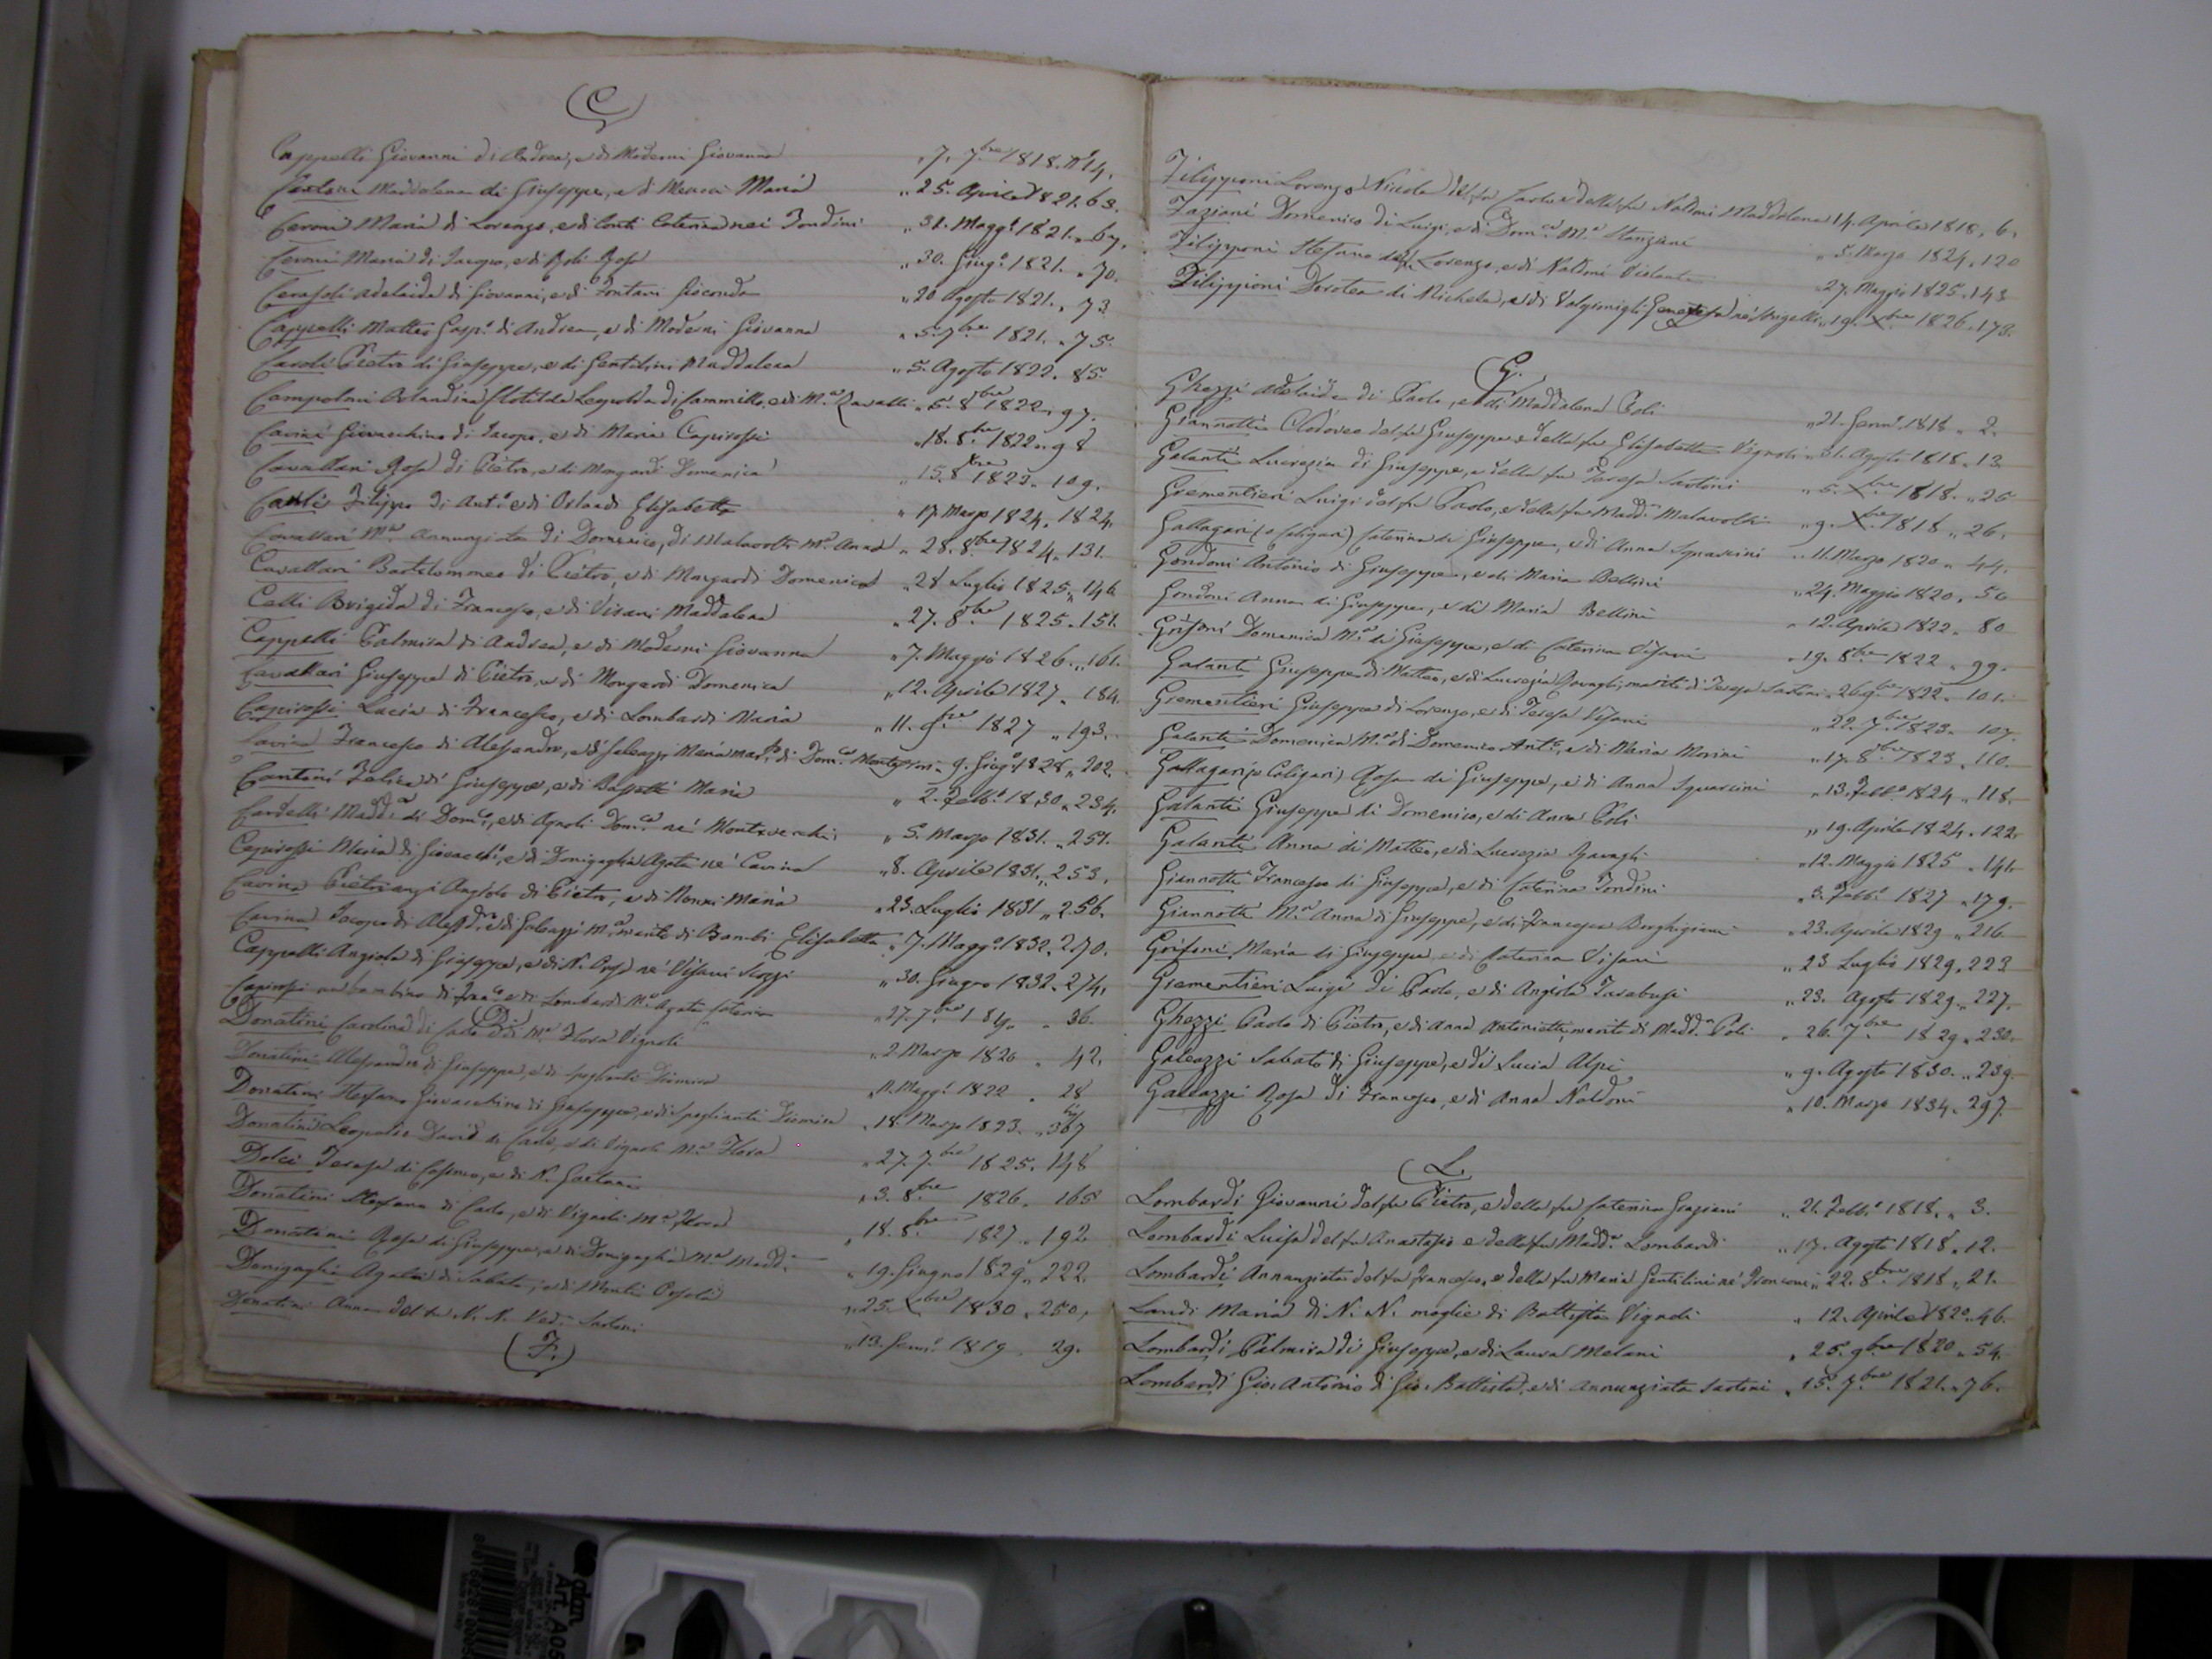 C
Cappelli Giovanni di Andrea, e di Moderni Giovanna „ 7. 7bre 1818. N° 14.
Maddalena di Giuseppe, e di Maria „ 25. Aprile 1821. 63.
Ceroni Maria di Lorenzo, e di Conti Caterina nei Tondini „ 31. Magg.° 1821. „ 67.
Ceroni Maria di Jacopo, e di Poli Rosa „ 30. Giug.° 1821. „ 70.
Cerasoli Adelaide di Giovanni, e di Fontani Gioconda „ 20 Agosto 1821. „ 73
Cappelli Matteo Gasp.e di Andrea, e di Moderni Giovanna „ 5. 7bre 1821. „ 75.
Caroli Pietro di Giuseppe, e di Gentilini Maddalena „ 5. Agosto 1822. 85.
Campolmi Orlandina Clotilde Leopolda di Cammillo, e di M.a Ravalli „ 5. 8bre 1822. 97.
Cavini Giovacchino di Jacopo, e di Maria Capirossi „ 18. 8bre 1822 „ 98
Cavallari Rosa di Pietro, e di Mongardi Domenica „ 15. 8bre 1823. 109.
Filippo di Ant.° e di Orlandi Elisabetta „ 17. Marzo 1824. 1824.
Cavallari M.a Annunziata di Domenico, di Malavolti M.a Anna „ 28. 8bre 1824. 131.
Cavallari Bartolommeo di Pietro, e di Mongardi Domenica „ 28 Luglio 1825. „ 146
Celli Brigida di Francesco, e di Visani Maddalena „ 27. 8bre 1825. 151.
Cappelli Palmira di Andrea, e di Moderni Giovanna „ 7. Maggio 1826. „ 161.
Cavallari Giuseppe di Pietro, e di Mongardi Domenica „ 12. Aprile 1827. 184.
Capirossi Lucia di Francesco, e di Lombardi Maria „ 11. 9bre 1827 „ 193.
Cavina Francesco di Alessandro, e di Galeazzi Maria mar.to di Dom.ca „ 9. Giug.° 1828. 202.
Cantoni Felice di Giuseppe, e di Maria „ 2. Febb.° 1830. 234.
Cardelli Madd.a di Dom.°, e di Agnoli Dom.ca ne' Montevecchi „ 5. Marzo 1831. „ 251.
Capirossi Maria di Giovacch.°, e di Donigaglia Agata ne' Cavina „ 8. Aprile 1831. „ 253.
Cavina Pietro Angiolo di Pietro, e di Nonni Maria „ 23. Luglio 1831 „ 256.
Cavina Jacopo di Aless.dro, e di Galeazzi M.a marito di Bambi Elisabetta „ 7. Magg.° 1832. 270.
Cappelli Angiola di Giuseppe, e di N. Rosa ne' Visani Scozzi „ 30. Giugno 1832. 274.
Capirossi un bambino di Franc.° e di Lombardi M.a Agata Caterina „ 27. 7bre 1819. „ 36.
D.
Donatini Carolina di Carlo e di M.a Flora Vignoli „ 2. Marzo 1820 „ 42.
Donatini Alessandro di Giuseppe, e di Spoglianti Diomira „ 11. Magg.° 1822 . 28
Donatini Stefano Giovacchino di Giuseppe, e di Spoglianti Diomira „ 18. Marzo 1823. „ 367
Donatini Leopoldo David di Carlo, e di Vignoli M.a Flora „ 27. 7bre 1825. 148
Dolci Teresa di Cosimo, e di N. Gaetana „ 3. 8bre 1826. 165
Donatini Stefano di Carlo, e di Vignoli M.a Flora „ 18. 8bre 1827. „ 192
Donatini Rosa di Giuseppe, e di Donigaglia M.a Madd.a „ 19. Giugno 1829. „ 222.
Donigaglia Agata di Sabato, e di Monti Orsola „ 25. Xbre 1830. 250.
Donatini Anna del fu N. N. Ved.a Sartoni „ 13. Genn.° 1819. 29.
F.
Filipponi Lorenzo Nicola del fu Carlo e della fu Naldoni Maddalena 14. Aprile 1818. 6.
Faziani Domenico di Luigi, e di Dom.ca M.a Stanziani „ 8. Marzo 1824. 120
Filipponi Stefano di Lorenzo, e di Naldoni Violante „ 27. Maggio 1825. 143
Filipponi Dorotea di Michele, e di Valgimigli ne' Mugelli „ 19. Xbre 1826. 173.
G.
Ghezzi Adelaide di Paolo, e di Maddalena Poli „ 21. Genn.° 1818 „ 2.
Giannotti Clodoveo del fu Giuseppe e della fu Elisabetta Vignoli „ 31. Agosto 1818. 13.
Galanti Lucrezia di Giuseppe, e della fu Teresa Sartoni „ 5. Xbre 1818. „ 25
Grementieri Luigi del fu Paolo, e della fu Madd.a Malavolti „ 9. Xbre 1818 „ 26.
Gallagari (o Caligari) Caterina di Giuseppe, e di Anna Squarcini „ 11. Marzo 1820 „ 44.
Gondoni Antonio di Giuseppe, e di Maria Bellini „ 24. Maggio 1820. 50
Gondoni Anna di Giuseppe, e di Maria Bellini „ 12. Aprile 1822. 80
Grifoni Domenica M.a di Giuseppe, e di Caterina Visani „ 19. 8bre 1822 „ 99.
Galanti Giuseppe di Matteo, e di Lucrezia Ravagli, marito di Teresa Sartoni „ 26. 9bre 1822. 101.
Grementieri Giuseppe di Lorenzo, e di Teresa Visani „ 22. 7bre 1823. 107.
Galanti Domenica M.a di Domenico Ant.°, e di Maria Morini „ 17. 8bre 1823. 110.
Gallagari (o Caligari) Rosa di Giuseppe, e di Anna Squarcini „ 13. Febb.° 1824. „ 118.
Galanti Giuseppe di Domenico, e di Anna Poli „ 19. Aprile 1824. 122.
Galanti Anna di Matteo, e di Lucrezia Ravagli „ 12. Maggio 1825 „ 141.
Giannotti Francesco di Giuseppe, e di Caterina Tondini „ 3. Febb.° 1827 „ 179.
Giannotti M.a Anna di Giuseppe, e di Francesca Borghigiani „ 23. Aprile 1829 „ 216.
Grifoni Maria di Giuseppe, e di Caterina Visani „ 23 Luglio 1829. 223
Grementieri Luigi di Paolo, e di Angiola Tarabusi „ 23. Agosto 1829. „ 227.
Ghezzi Paolo di Pietro, e di Anna Antonietti, marito di Madd.a Poli „ 26. 7bre 1829. 230.
Galeazzi Sabato di Giuseppe, e di Lucia Alpi „ 9. Agosto 1830. „ 239.
Galeazzi Rosa di Francesco, e di Anna Naldoni „ 10. Marzo 1834. 297.
L.
Lombardi Giovanni del fu Pietro, e della fu Caterina Graziani „ 21. Febb.° 1818. „ 3.
Lombardi Luisa del fu Anastasio e della fu Madd.a Lombardi „ 17. Agosto 1818. 12.
Lombardi Annunziata del fu Francesco, e della fu Maria Gentilini ne' Tronconi „ 22. 8bre 1818 „ 21.
Landi Maria di N. N. moglie di Battista Vignoli „ 12. Aprile 1820. 46.
Lombardi Palmira di Giuseppe, e di Laura Melani „ 25. 9bre 1820 „ 54.
Lombardi Gio: Antonio di Gio: Battista, e di Annunziata Sartoni „ 15. 7bre 1821. „ 76.
adam
Art. A05